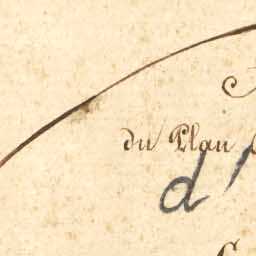 du Plan
d'